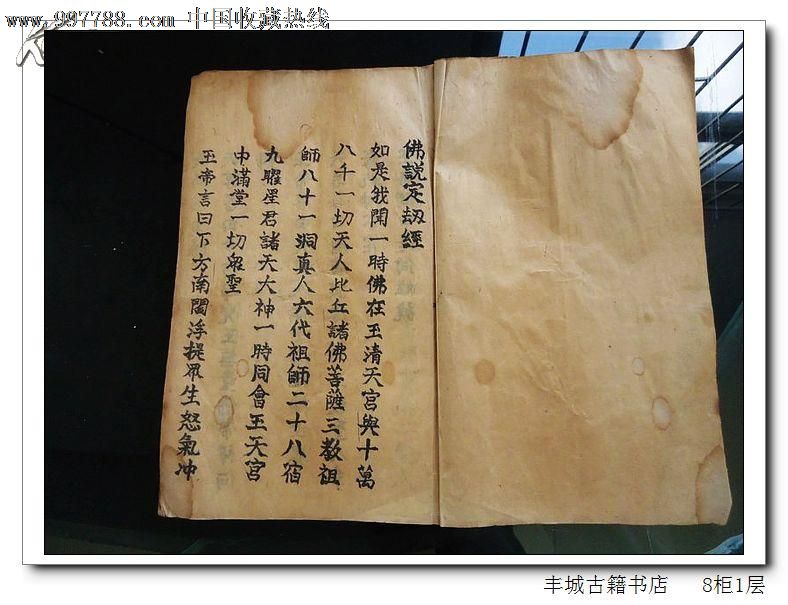 www.997788.com 中国收藏热线
佛説定刼經
如是我聞一時佛在玉清天宮與十萬
八千一切天人比丘諸佛菩薩三教祖
師八十一洞真人六代祖師二十八宿
九曜星君諸天大神一時同會玉天宮
中滿堂一切衆聖
玉帝言曰下方南閻浮提眾生怒氣冲
丰城古籍书店 8柜1层